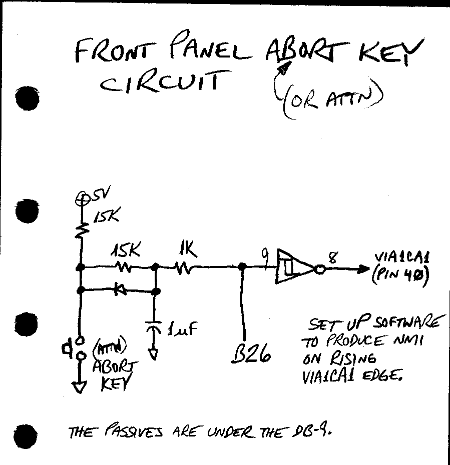 FRONT PANEL ABORT KEY
CIRCUIT
(OR ATTN)
5V
15K
15K
1K
9
8
VIA1CA1
(PIN 40)
1uF
(ATTN)
ABORT
KEY
B26
SET UP SOFTWARE
TO PRODUCE NMI
ON RISING
VIA1CA1 EDGE.
THE PASSIVES ARE UNDER THE DB-9.